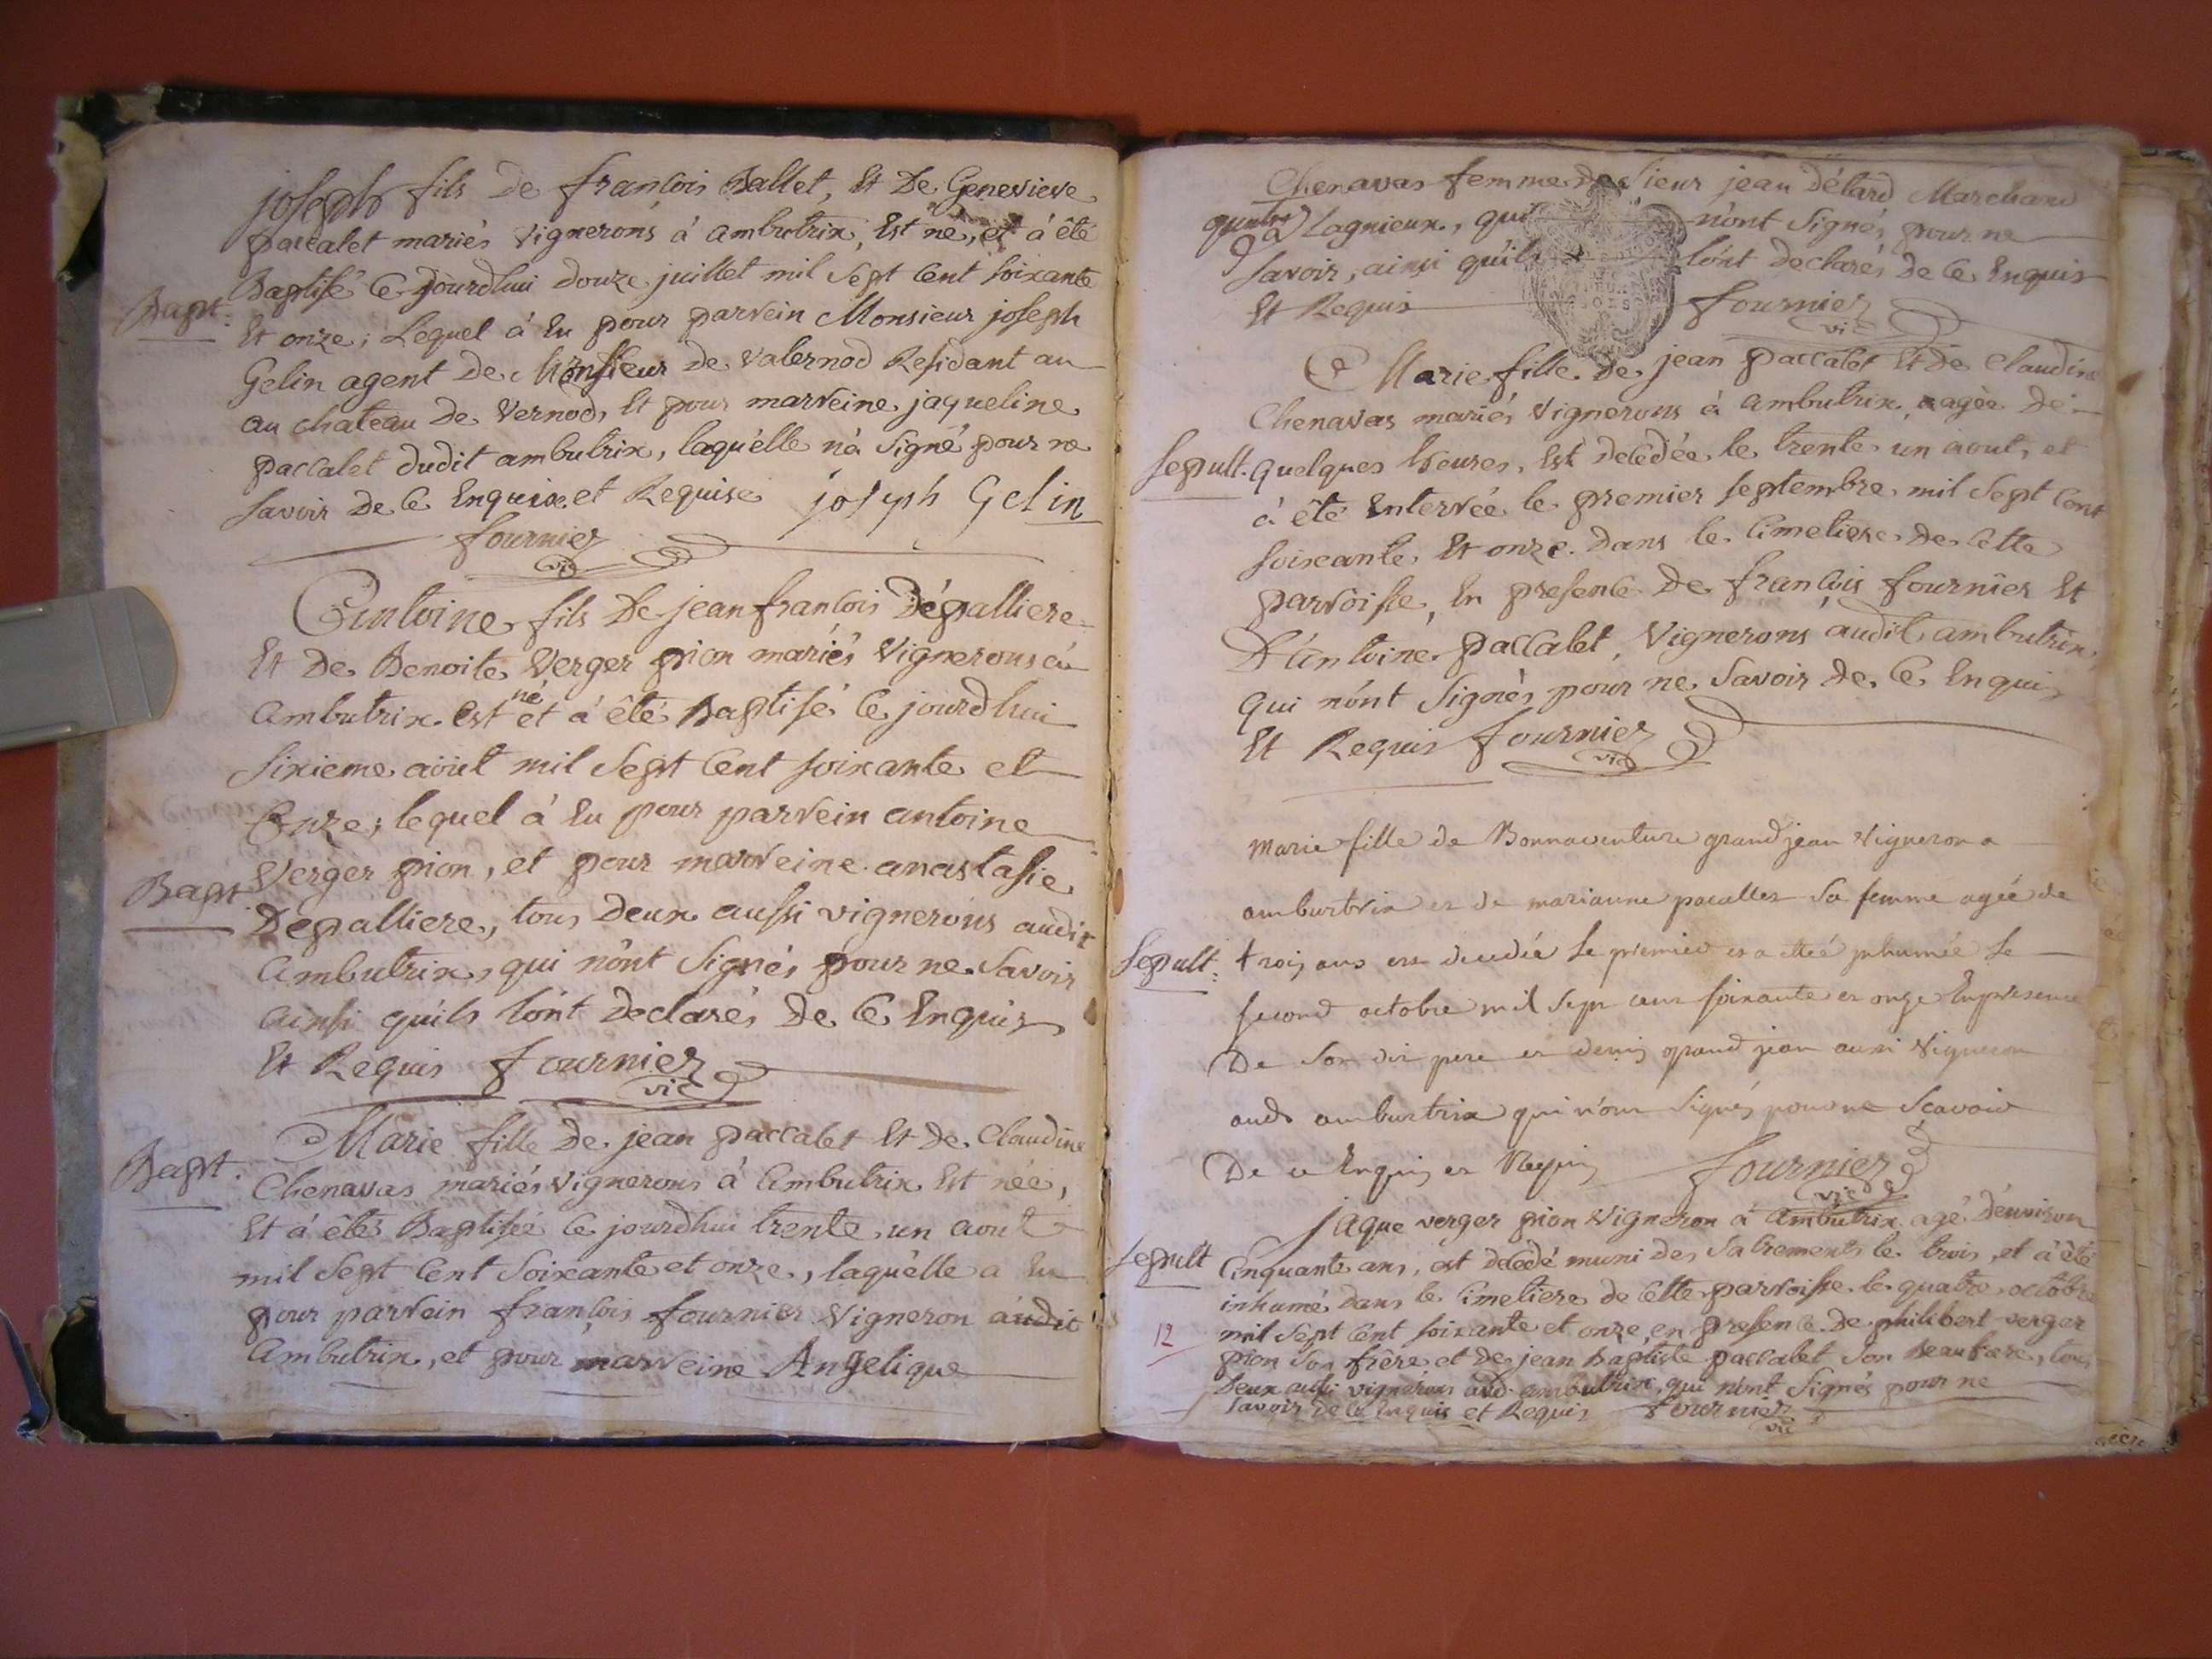 joseph fils de francois Ballet, Et De Genevieve
paccalet mariés vignerons à ambutrix, Est né, et à été
Baptisé Ce jourdhui douze juillet mil Sept Cent soixante
Bapt:
Et onze; Lequel à Eu pour parrein Monsieur joseph
Gelin agent De Monsieur de valernod Residant au
au chateau de Vernod, Et pour marreine jaqueline
paccalet dudit ambutrix, laquélle n'à Signé pour ne
savoir De Ce Enquise et Requise joseph Gelin
fournier
vic
Antoine fils De jean francois Dégalliere
Et De Benoite Verger pion mariés Vignerons à
né
ambutrix Est et à été Baptisé Ce jourdhui
Sixieme aout mil Sept Cent soixante et
Onze; lequel à Eu pour parrein antoine
Verger pion, et pour marreine anastasie
Bapt
Degalliere, tous Deux aussi vignerons audit
Ambutrix, qui nònt Signés pour ne Savoir
ainsi quils lònt Declarés De Ce Enquis
Et Requis fournier
vic
Marie fille De jean paccalet Et De Claudine
Bapt:
Chenavas mariés Vignerons à Ambutrix Est née,
Et à été Baptisée Ce jourdhui trente un aout
mil Sept Cent Soixante et onze, laquélle a Eu
pour parrein francois fournier Vigneron audit
Ambutrix, et pour marreine Angelique
Chenavas femme de Sieur jean Détard Marchand
à Lagnieux, qui n'ont Signés pour ne
savoir, ainsi quils lònt Declarés De Ce Enquis
Et Requis fournier
vic
Marie fille De jean paccalet Et De Claudine
Chenavas mariés Vignerons à Ambutrix, agée De
Sepult. quelques heures, Est Decedée le trente un aout, et
à été Enterrée le premier septembre mil Sept Cent
soixante Et onze dans le Cimetiere De Cette
parroisse, En presence De francois fournier Et
D'Antoine paccalet, Vignerons audit ambutrix,
qui nònt Signés pour ne Savoir De Ce Enquis
Et Requis fournier
vic
Marie fille de Bonnaventure grandjean Vigneron a
amburtrix et de marianne pacallet Sa femme agée de
Sepult: trois ans est decedée le premier et a eteé inhumée le
second octobre mil Sept cent soixante et onze En presence
De Son dit pere et denis grand jean aussi Vigneron
aud. amburtrix qui n'ont Signés pour ne Scavoir
De ce Enquis et Requis fournier
vic
jaque verger pion Vigneron à Ambutrix agé d'environ
Sepult Cinquante ans, est décédé muni des Sacrements le trois, et à été
inhumé dans le Cimetiere de Cette parroisse le quatre octobre
12 mil Sept Cent soixante et onze, en presence De philibert verger
pion Son frère et De jean Baptiste paccalet Son Beaufrere, tous
Deux aussi vignerons aud. ambutrix, qui nònt Signés pour ne
savoir De Ce Enquis et Requis fournier
vic